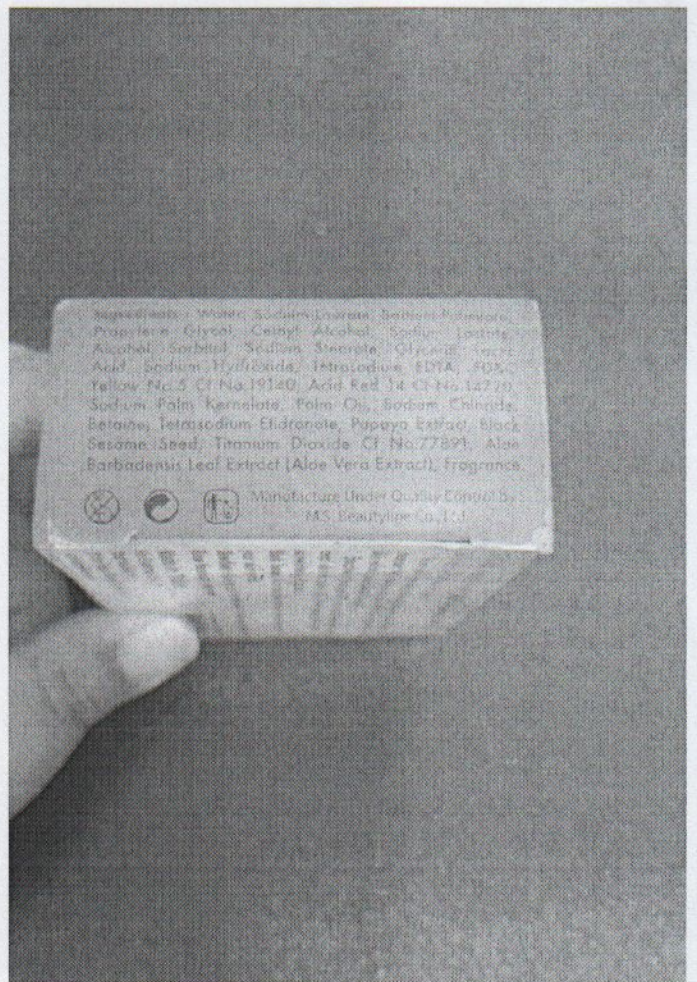 Ingredients : Water, Sodium Laurate, Sodium Palmitate,
Propylene Glycol, Cethyl Alcohol, Sodium Lactate,
Alcohol, Sorbitol, Sodium Stearate, Glycerin, Lactic
Acid, Sodium Hydroxide, Tetrasodium EDTA,
Yellow No.5 CI No.19140, Acid Red 14 CI No.14720,
Sodium Palm Kernelate, Palm Oil, Sodium Chloride,
Betaine, Tetrasodium Etidronate, Papaya Extract, Black
Sesame Seed, Titanium Dioxide CI No.77891, Aloe
Barbadensis Leaf Extract (Aloe Vera Extract), Fragrance.
Manufacture Under Quality Control By S.
M.S. Beautyline Co., Ltd.